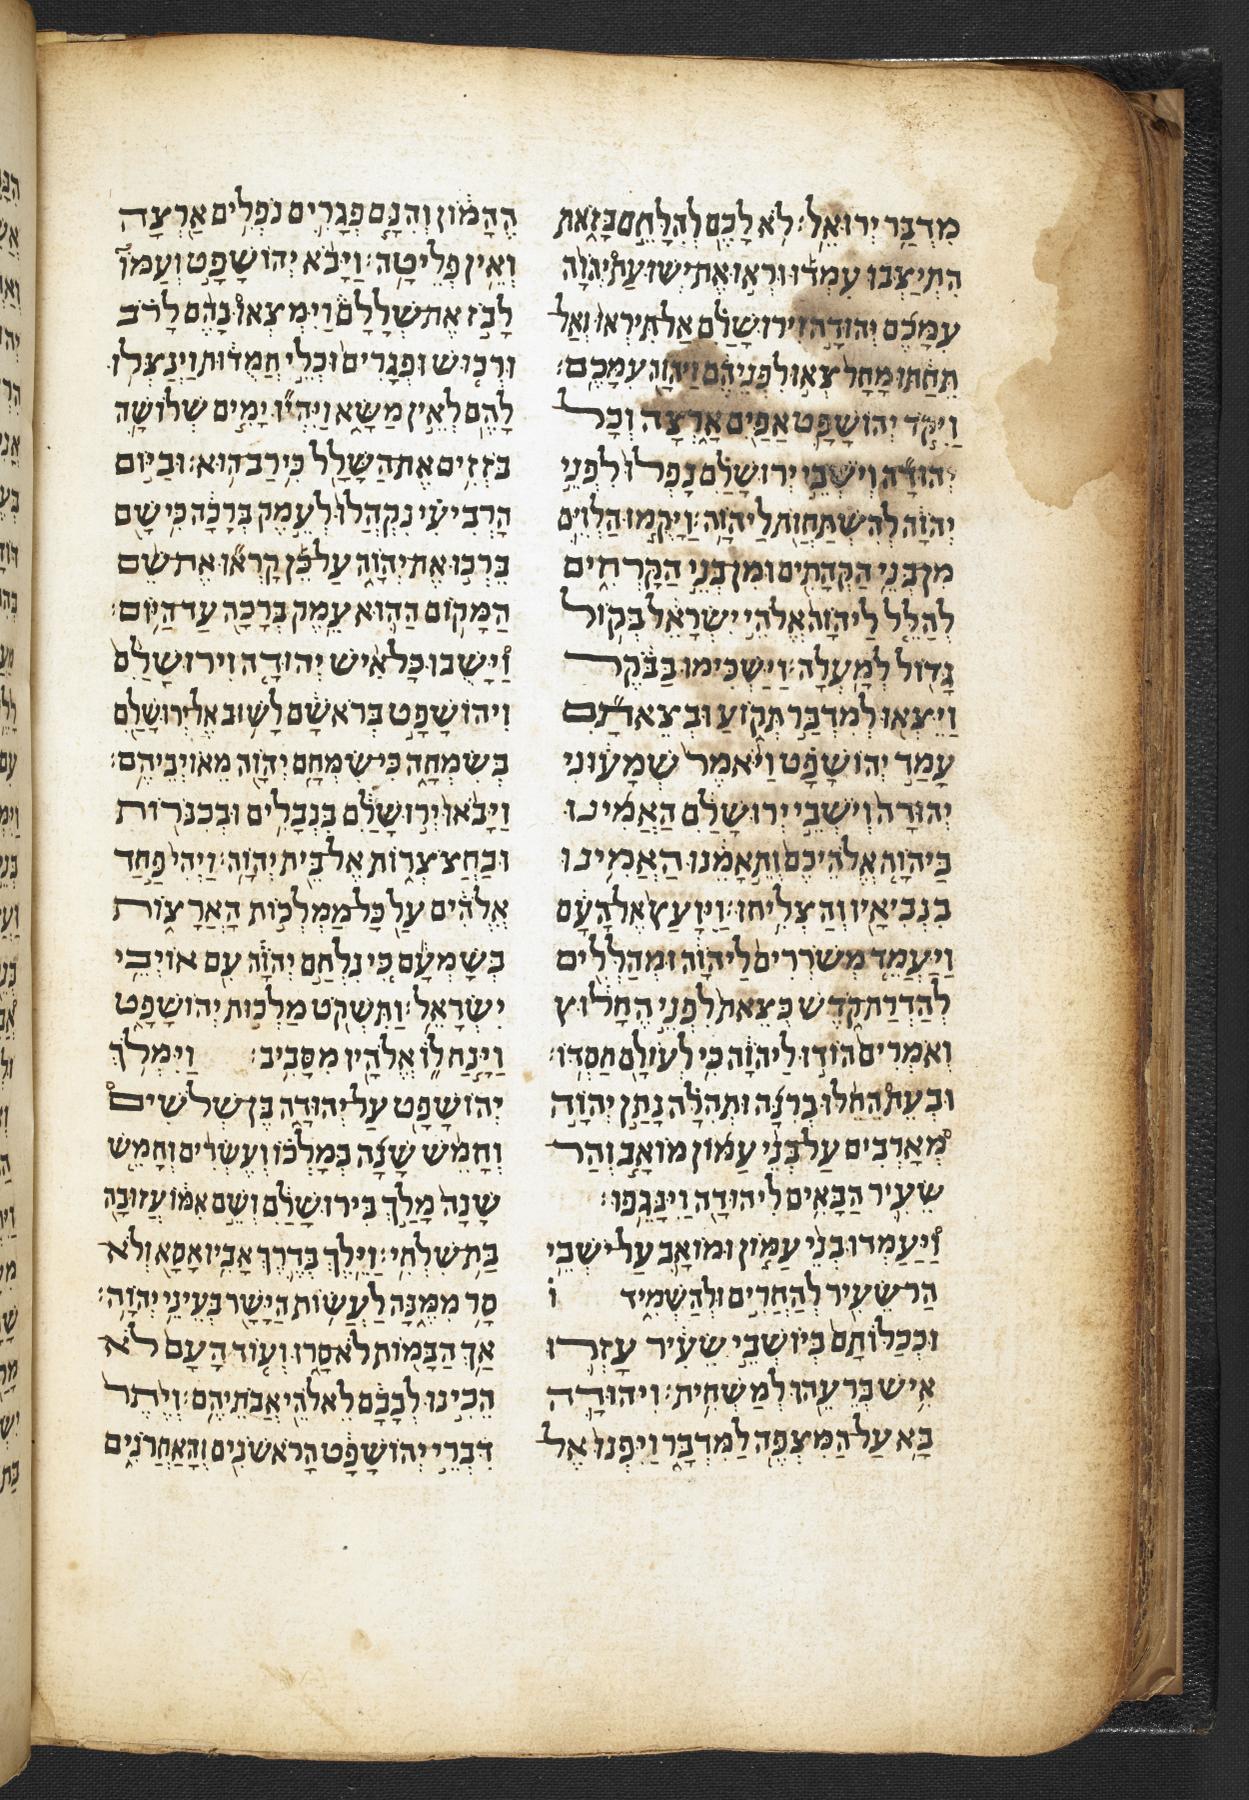 מדבר ירואל׃ לא לכם להלחם בזאת
התיצבו עמדו וראו את ישועת יהוה
עמכם יהודה וירושלם אל תיראו ואל
תחתו מחר צאו לפניהם ויהוה עמכם׃
ויקד יהושפט אפים ארצה וכל
יהודה וישבי ירושלם נפלו לפני
יהוה להשתחות ליהוה׃ ויקמו הלוים
מן בני הקהתים ומן בני הקרחים
להלל ליהוה אלהי ישראל בקול
גדול למעלה׃ וישכימו בבקר
ויצאו למדבר תקוע ובצאתם
עמד יהושפט ויאמר שמעוני
יהודה וישבי ירושלם האמינו
ביהוה אלהיכם ותאמנו האמינו
בנביאיו והצליחו׃ ויועץ אל העם
ויעמד משררים ליהוה ומהללים
להדרת קדש בצאת לפני החלוץ
ואמרים הודו ליהוה כי לעולם חסדו׃
ובעת החלו ברנה ותהלה נתן יהוה
מארבים על בני עמון מואב והר
שעיר הבאים ליהודה וינגפו׃
ויעמדו בני עמון ומואב על ישבי
הר שעיר להחרים ולהשמיד
וככלותם ביושבי שעיר עזרו
איש ברעהו למשחית׃ ויהודה
בא על המצפה למדבר ויפנו אל
ההמון והנם פגרים נפלים ארצה
ואין פליטה׃ ויבא יהושפט ועמו
לבז את שללם וימצאו בהם לרב
ורכוש ופגרים וכלי חמדות וינצלו
להם לאין משא ויהיו ימים שלושה
בזזים את השלל כי רב הוא׃ וביום
הרביעי נקהלו לעמק ברכה כי שם
ברכו את יהוה על כן קראו את שם
המקום ההוא עמק ברכה עד היום׃
וישבו כל איש יהודה וירושלם
ויהושפט בראשם לשוב אל ירושלם
בשמחה כי שמחם יהוה מאויביהם׃
ויבאו ירושלם בנבלים ובכנרות
ובחצצרות אל בית יהוה׃ ויהי פחד
אלהים על כל ממלכות הארצות
בשמעם כי נלחם יהוה עם אויבי
ישראל׃ ותשקט מלכות יהושפט
וינח לו אלהיו מסביב׃ וימלך
יהושפט על יהודה בן שלשים
וחמש שנה במלכו ועשרים וחמש
שנה מלך בירושלם ושם אמו עזובה
בת שלחי׃ וילך בדרך אביו אסא ולא
סר ממנה לעשות הישר בעיני יהוה׃
אך הבמות לא סרו ועוד העם לא
הכינו לבבם לאלהי אבתיהם׃ ויתר
דברי יהושפט הראשנים והאחרנים